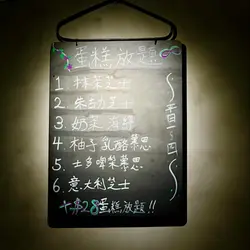 蛋糕放題
1. 抹茶芝士
2. 朱古力芝士
3. 奶茶
4. 柚子乳酪慕思
5. 士多啤梨慕思
6. 意大利芝士
十$28蛋糕放題!!